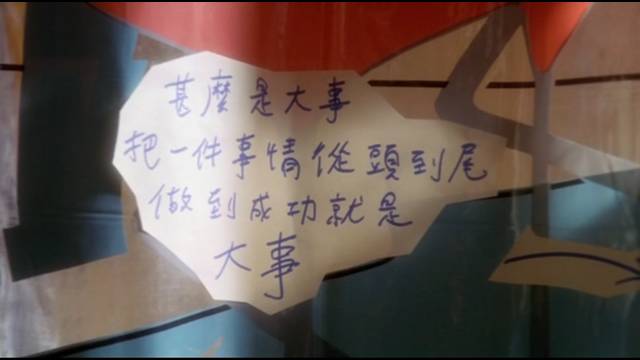 甚麼是大事
把一件事情從頭到尾
做到成功就是
大事